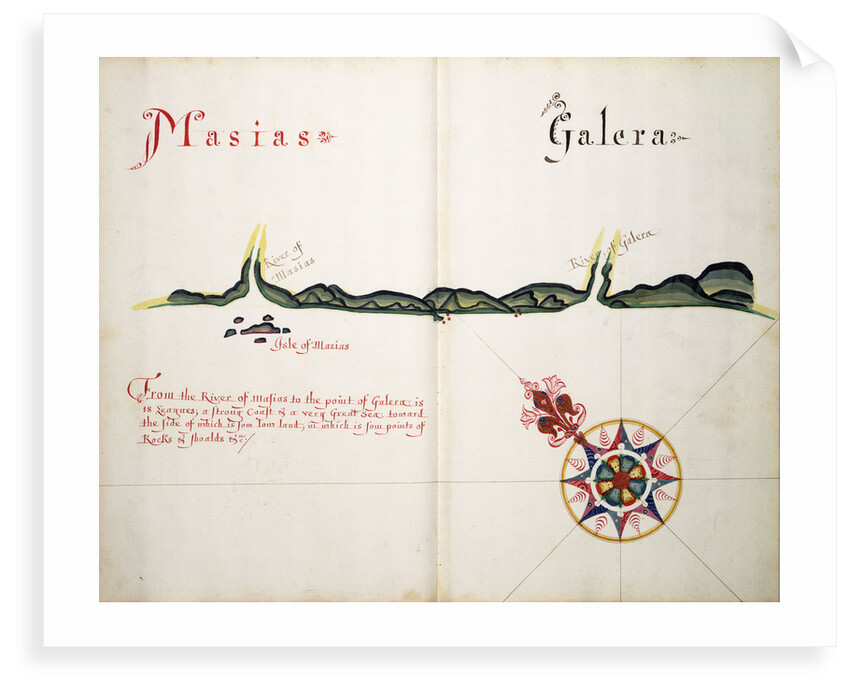 Masias
Galera
River of
Masias
River of Galera
Isle of Masias
From the River of Masias to the point of Galera is
18 Leagues; a strong Coast & a very Great Sea toward
the side of which is som low land, in which is som points of
Rocks & shoalds &c/